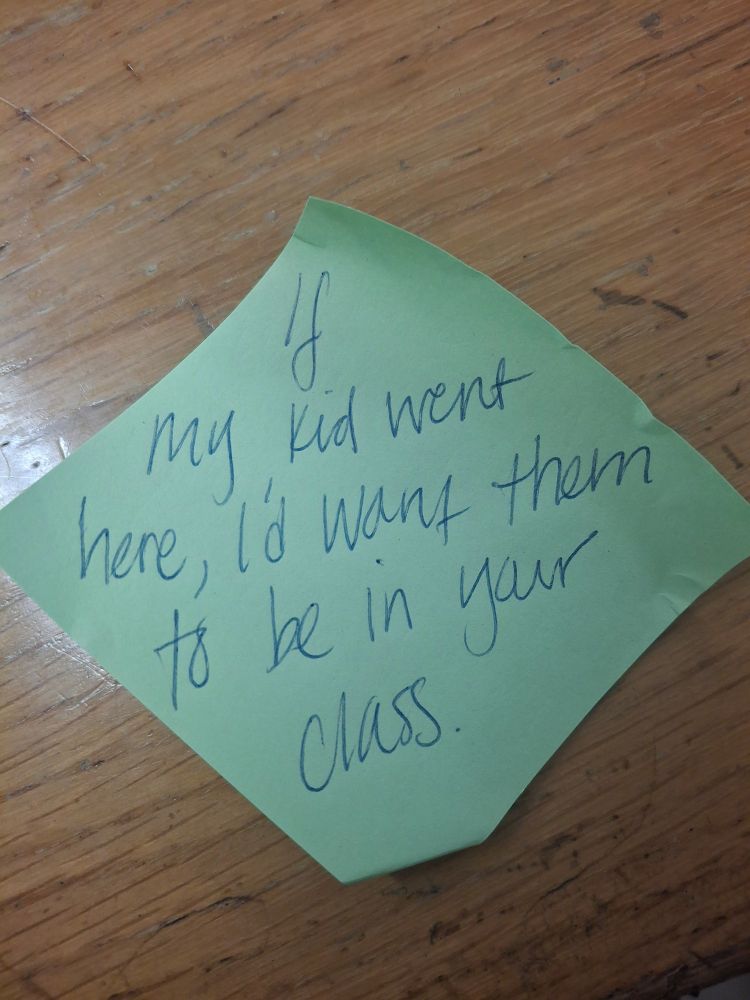 If
my kid went
here, I'd want them
to be in your
class.